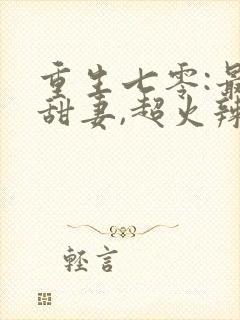 重生七零:最
甜妻,超火辣
轻言